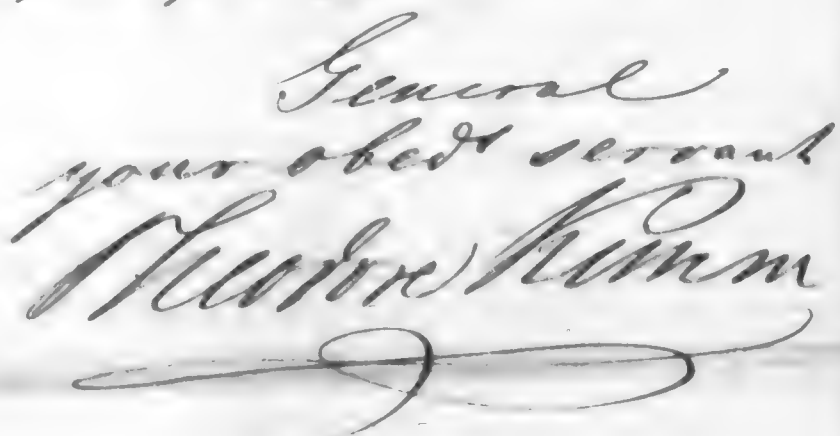 General
your obedt servant
Theodore Kimm